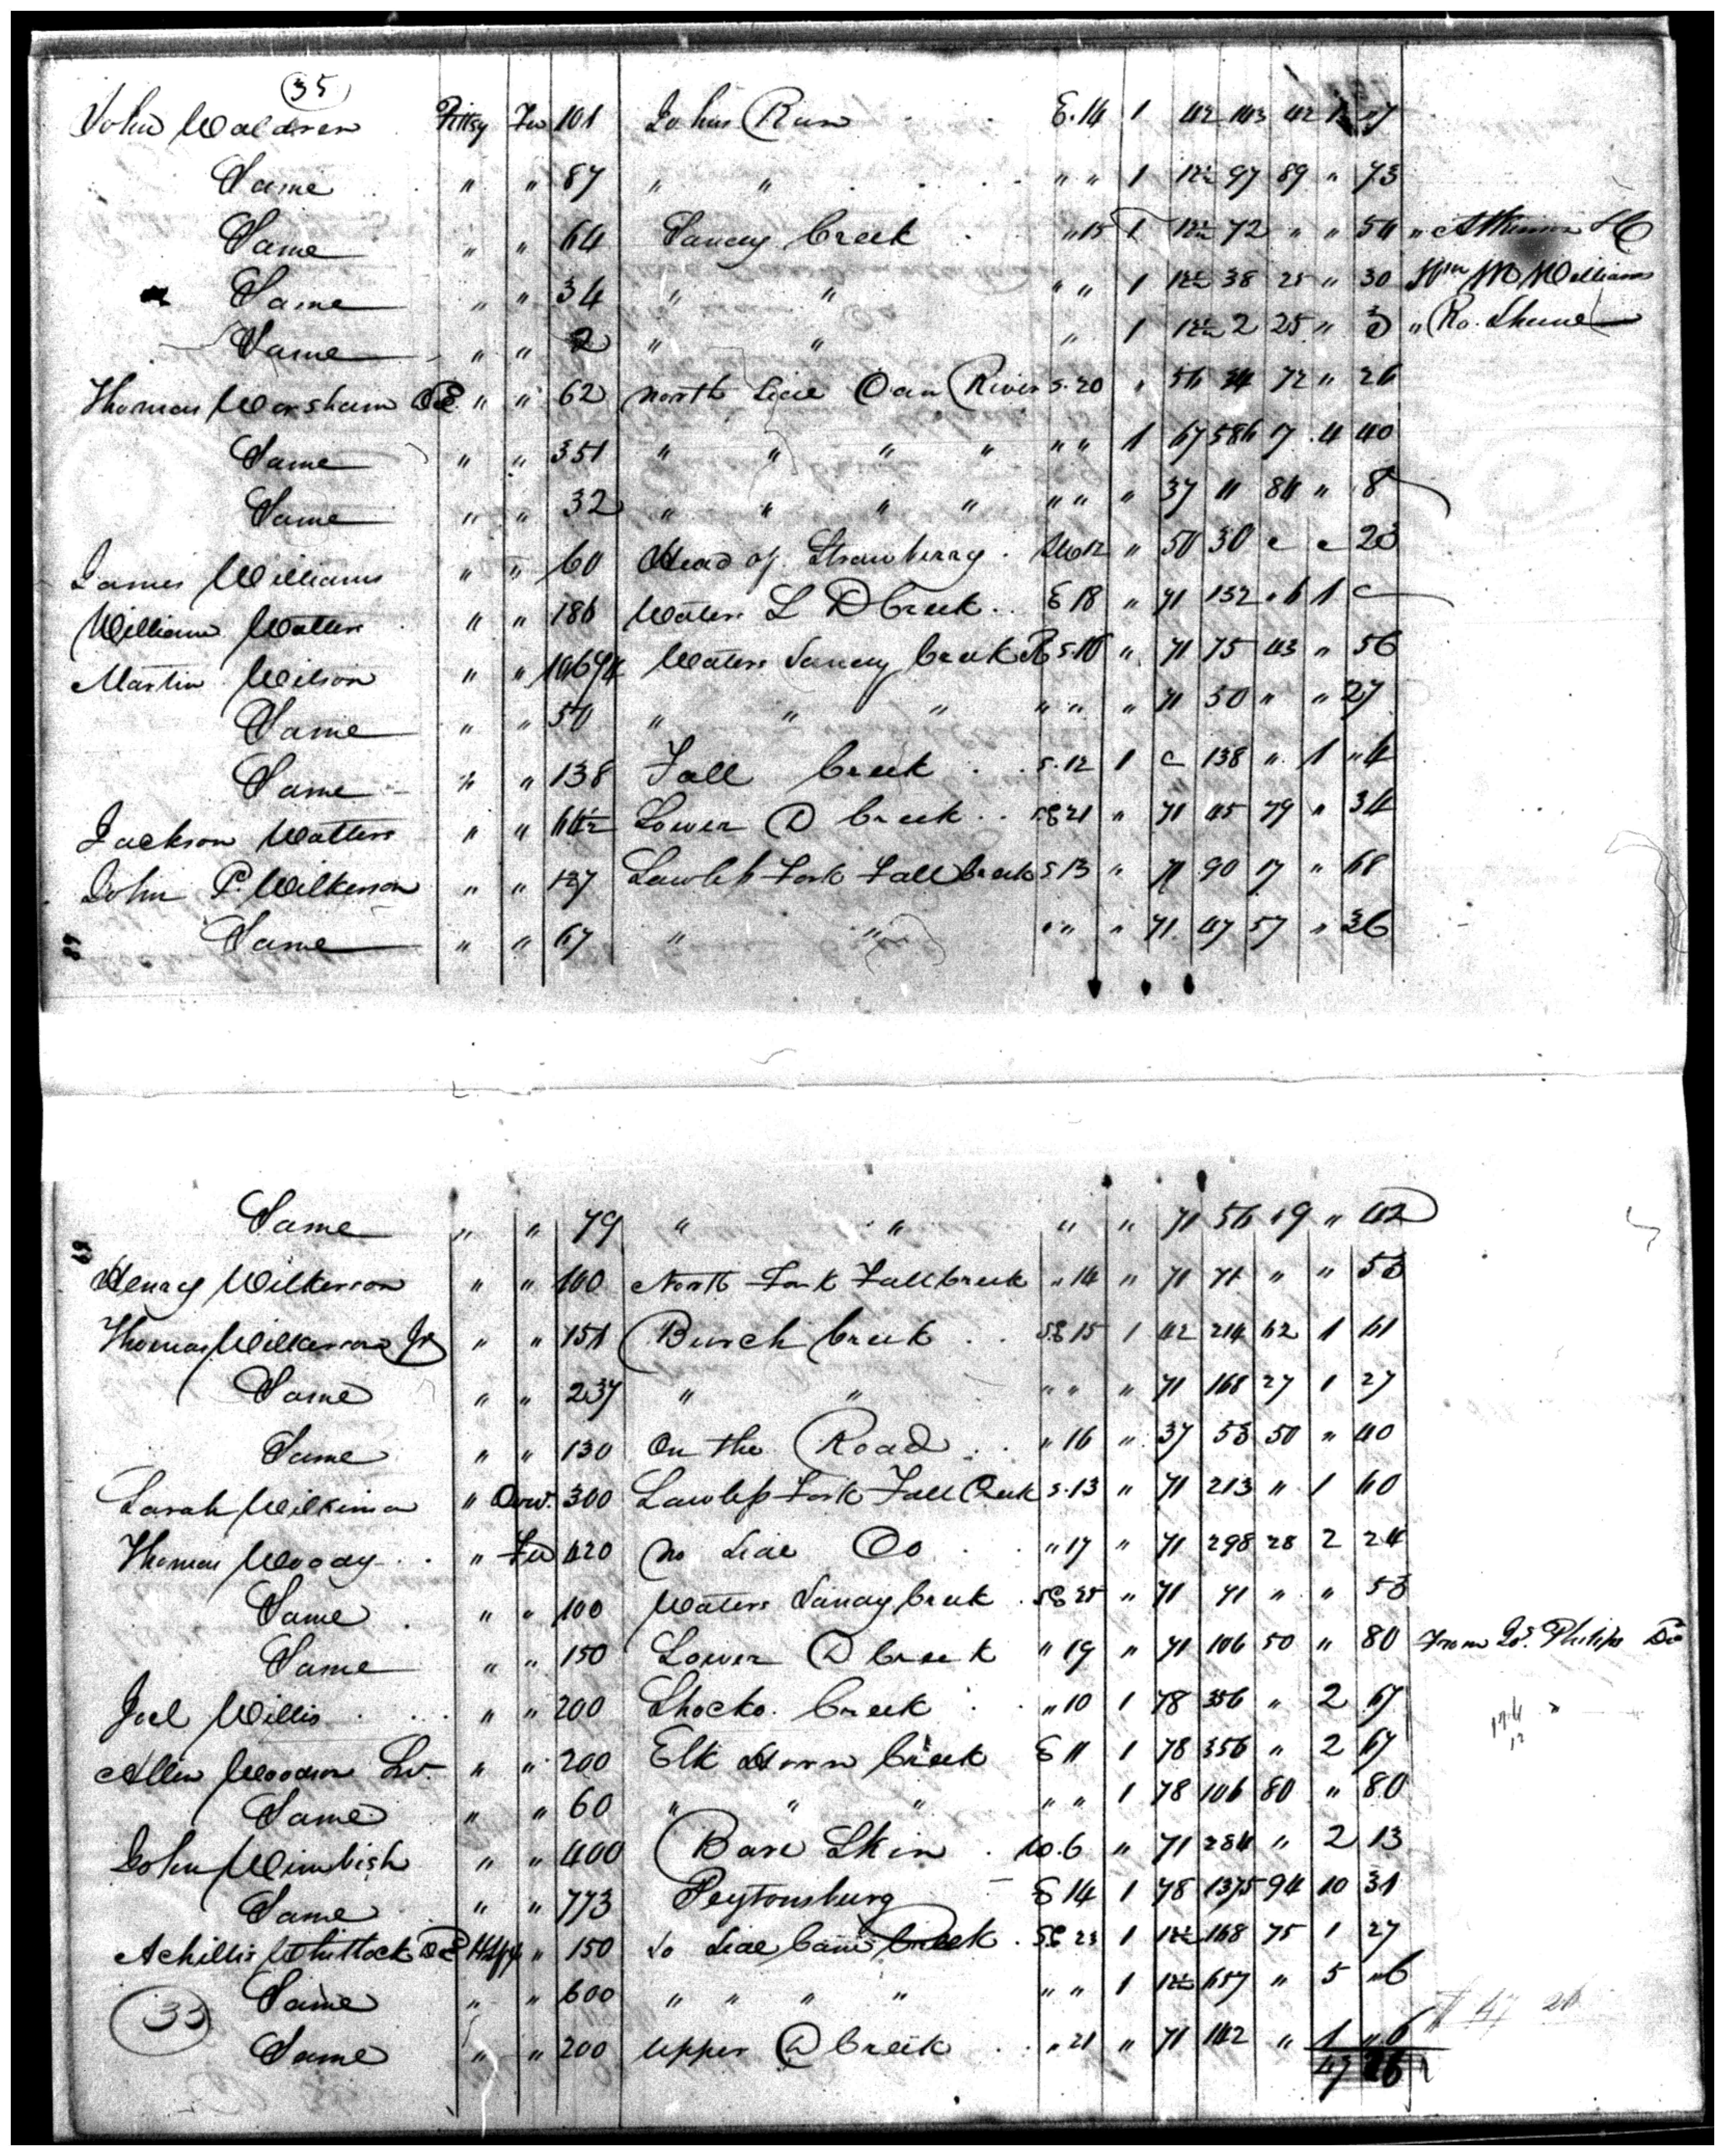 35
John Waldren Pittsy Fee 101 Johns Run E.14 1 42 143 42 1 "7
Same " " 87 " " " " 1 12½ 97 89 " 73
Same " " 64 Sandy Creek " 15 1 12½ 72 " " 54 "
Same " " 34 " " " " 1 12½ 38 25 " 30 Wm M Williams
Same " " 2 " " " 1 12½ 2 25 " "
Thomas Worsham " " 62 North Side Dan River S.20 " 56 34 72 " 26
Same " " 351 " " " " " " 1 67 586 17 4 40
Same " " 32 " " " " " " " 37 11 84 " 8
James Williams " " 60 Head of Strawberry 12 " 50 30 c c 23
William Walters " " 186 Waters L D Creek E 18 " 71 132 " 6 1 c
Martin Wilson " " Waters Sandy Creek R " 71 75 43 " 56
Same " " 50 " " " " " " 71 50 " " 27
Same " " 138 Fall Creek S.12 1 c 138 " 1 "4
Jackson Walters " " 64½ Lower D Creek SE 21 " 71 45 79 " 34
John P. Wilkerson " " 127 Lawless Fork Fall Creek S 13 " 71 90 17 " 68
Same " " 67 " " " " " 71 47 57 " 36
Same " " 79 " " " " 71 56 19 " 42
Henry Wilkerson " " 100 North Fork Fall Creek " 14 " 71 71 " " 53
Thomas Wilkerson Jr " " 151 Burch Creek SE 15 1 42 214 62 1 61
Same " " 237 " " " " " 71 168 27 1 27
Same " " 130 On the Road " 16 " 37 53 50 " 40
Sarah Wilkinson " Dow. 300 Lawless Fork Fall Creek S.13 " 71 213 " 1 60
Thomas Woody " Fee 420 No Side Do " 17 " 71 298 28 2 24
Same " " 100 Waters Sandy Creek SE 25 " 71 71 " " 53
Same " " 150 Lower D Creek " 19 " 71 106 50 " 80 From Jos. Philips
Joel Willis " " 200 Shocko Creek " 10 1 78 356 " 2 67
Allen Woodson " " 200 Elk Horn Creek E 11 1 78 356 " 2 67
Same " " 60 " " " " " 1 78 106 80 " 80
John Wimbish " " 400 Bare Skin W.6 " 71 284 " 2 13
Same " " 773 Peytonsburg E 14 1 78 1375 94 10 31
Achillis Whitlock " 150 So Side Cane Creek SE 23 1 12½ 168 75 1 27
Same " " 600 " " " " " " 1 12½ 657 " 5 "6
33
Same " " 200 Upper D Creek " 21 " 71 142 " 1 "6
47 26